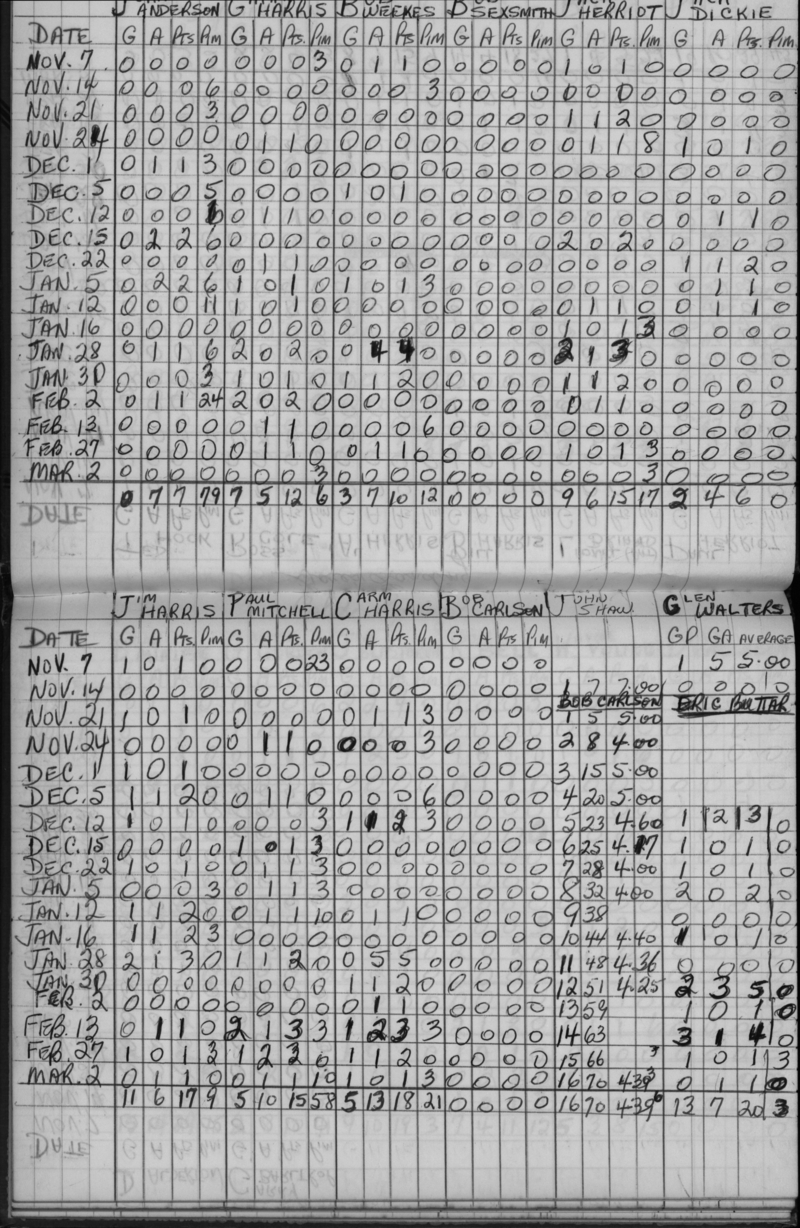 ANDERSON HARRIS WEEKES SEXSMITH HERRIOT DICKIE
DATE G A Pts Pim G A Pts. Pim G A Pts Pim G A Pts Pim G A Pts. Pim G A Pts. Pim
NOV. 7 0 0 0 0 0 0 0 3 0 1 1 0 0 0 0 0 1 0 1 0 0 0 0 0
NOV. 14 0 0 0 6 0 0 0 0 0 0 0 3 0 0 0 0 0 0 0 0 0 0 0 0
NOV. 21 0 0 0 3 0 0 0 0 0 0 0 0 0 0 0 0 1 1 2 0 0 0 0 0
NOV. 24 0 0 0 0 0 1 1 0 0 0 0 0 0 0 0 0 0 1 1 8 1 0 1 0
DEC. 1 0 1 1 3 0 0 0 0 0 0 0 0 0 0 0 0 0 0 0 0 0 0 0 0
DEC. 5 0 0 0 5 0 0 0 0 1 0 1 0 0 0 0 0 0 0 0 0 0 0 0 0
DEC. 12 0 0 0 0 1 1 0 0 0 0 0 0 0 0 0 0 0 0 0 0 1 1 0
DEC. 15 0 2 2 6 0 0 0 0 0 0 0 0 0 0 0 0 2 0 2 0 0 0 0 0
DEC. 22 0 0 0 0 0 1 1 0 0 0 0 0 0 0 0 0 0 0 0 0 1 1 2 0
JAN. 5 0 2 2 6 1 0 1 0 1 0 1 3 0 0 0 0 0 0 0 0 0 1 1 0
JAN. 12 0 0 0 11 1 0 1 0 0 0 0 0 0 0 0 0 0 1 1 0 0 1 1 0
JAN. 16 0 0 0 0 0 0 0 0 0 0 0 0 0 0 0 0 1 0 1 3 0 0 0 0
JAN. 28 0 1 1 6 2 0 2 0 0 4 4 0 0 0 0 0 2 1 3 0 0 0 0 0
JAN. 30 0 0 0 3 1 0 1 0 1 1 2 0 0 0 0 0 1 1 2 0 0 0 0 0
FEB. 2 0 1 1 24 2 0 2 0 0 0 0 0 0 0 0 0 0 1 1 0 0 0 0 0
FEB. 13 0 0 0 0 0 1 1 0 0 0 0 6 0 0 0 0 0 0 0 0 0 0 0 0
FEB. 27 0 0 0 0 0 1 1 0 0 1 1 0 0 0 0 0 1 0 1 3 0 0 0 0
MAR. 2 0 0 0 0 0 0 0 3 0 0 0 0 0 0 0 0 0 0 0 3 0 0 0 0
0 7 7 79 7 5 12 6 3 7 10 12 0 0 0 0 9 6 15 17 2 4 6 0
JIM HARRIS PAUL MITCHELL CARM HARRIS BOB CARLSON JOHN SHAW GLEN WALTERS
DATE G A Pts. Pim G A Pts. Pim G A Pts. Pim G A Pts Pim GP GA AVERAGE
NOV. 7 1 0 1 0 0 0 0 23 0 0 0 0 0 0 0 0 1 5 5.00
NOV. 14 0 0 0 0 0 0 0 0 0 0 0 0 0 0 0 0 1 7 7.00 0 0 0 0
BOB CARLSON ERIC BUTTAR
NOV. 21 1 0 1 0 0 0 0 0 0 1 1 3 0 0 0 0 1 5 5.00
NOV. 24 0 0 0 0 0 1 1 0 0 0 0 3 0 0 0 0 2 8 4.00
DEC. 1 1 0 1 0 0 0 0 0 0 0 0 0 0 0 0 0 3 15 5.00
DEC. 5 1 1 2 0 0 1 1 0 0 0 0 6 0 0 0 0 4 20 5.00
DEC. 12 1 0 1 0 0 0 0 3 1 1 2 3 0 0 0 0 5 23 4.60 1 2 3 0
DEC. 15 0 0 0 0 1 0 1 3 0 0 0 0 0 0 0 0 6 25 4.17 1 0 1 0
DEC. 22 1 0 1 0 0 1 1 3 0 0 0 0 0 0 0 0 7 28 4.00 1 0 1 0
JAN. 5 0 0 0 3 0 1 1 3 0 0 0 0 0 0 0 0 8 32 4.00 2 0 2 0
JAN. 12 1 1 2 0 0 1 1 10 0 1 1 0 0 0 0 0 9 38 0 0 0 0
JAN. 16 1 1 2 3 0 0 0 0 0 0 0 0 0 0 0 0 10 44 4.40 1 0 1 0
JAN. 28 2 1 3 0 1 1 2 0 0 5 5 0 0 0 0 0 11 48 4.36 0 0 0 0
JAN. 30 0 0 0 0 0 0 0 0 0 1 1 2 0 0 0 0 0 12 51 4.25 2 3 5 0
FEB. 2 0 0 0 0 0 0 0 0 0 1 1 0 0 0 0 0 13 59 1 0 1 0
FEB. 13 0 1 1 0 2 1 3 3 1 2 3 3 0 0 0 0 14 63 3 1 4 0
FEB. 27 1 0 1 3 1 2 3 0 1 1 2 0 0 0 0 0 15 66 1 0 1 3
MAR. 2 0 1 1 0 0 1 1 10 1 0 1 3 0 0 0 0 16 70 4.39 0 1 1 0
11 6 17 9 5 10 15 58 5 13 18 21 0 0 0 0 16 70 4.39 13 7 20 3